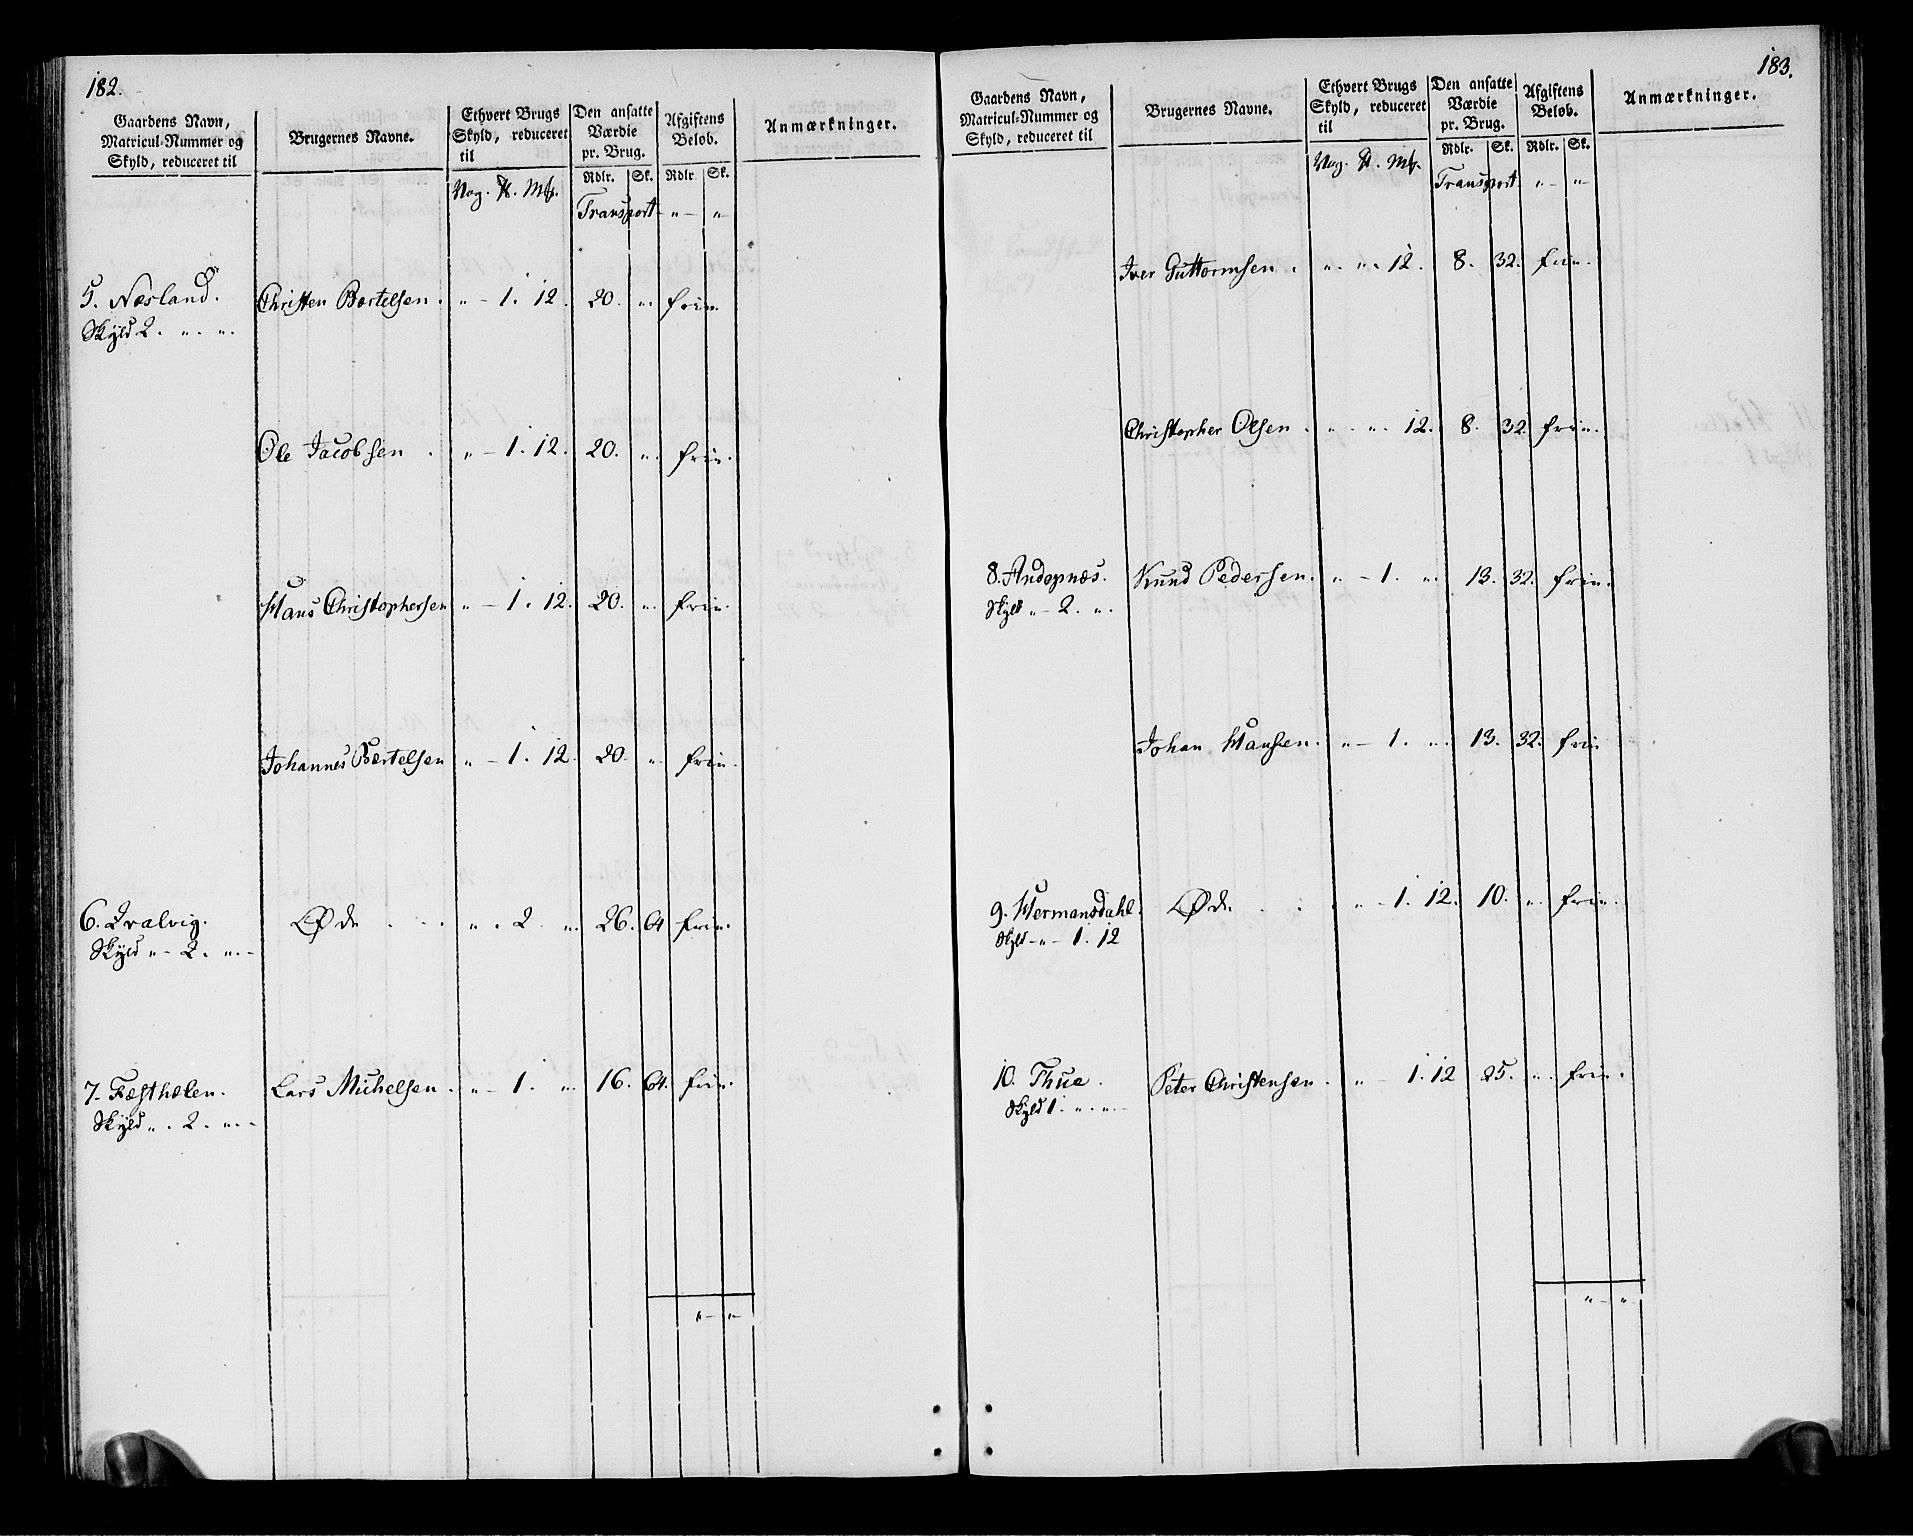 182.
Gaardens Navn, Matricul-Nummer og Skyld, reduceret til
Brugernes Navne.
Ethvert Brugs Skyld, reduceret til
Den ansatte Værdie pr. Brug.
Afgiftens Beløb.
Anmærkninger.
Rdlr. Sk. Rdlr. Sk.
Vog. ℔. Mk.
Transport „ – „
5. Næsland. Christen Bertelsen. „ – 1. 12. 20. „. frie.
Skyld 2. „. „.
Ole Jacobsen. „ – 1. 12. 20. „. frie.
Hans Christophersen „ – 1. 12. 20. „. frie.
Johannes Bertelsen „ – 1. 12. 20. „. frie.
6. Qvalvig. Øde . . . „. 2. „. 26. 64 frie.
Skyld „ – 2. „. –
7. Fæsthælen. Lars Michelsen. „ – 1. „. 16. 64. frie.
Skyld „. 2. „. –
„ – „
183.
Gaardens Navn, Matricul-Nummer og Skyld, reduceret til
Brugernes Navne.
Ethvert Brugs Skyld, reduceret til
Den ansatte Værdie pr. Brug.
Afgiftens Beløb.
Anmærkninger.
Rdlr. Sk. Rdlr. Sk.
Vog. ℔. Mk.
Transport „ – „
Iver Guttormsen. „. „. 12. 8. 32. frie.
Christopher Olsen. „. „. 12. 8. 32 frie.
8. Andopnæs. Knud Pedersen. „ – 1. „. 13. 32. frie.
Skyld „ – 2. „.
Johan Hansen. „ – 1. „. 13. 32. frie
9. Hermansdahl. Øde . . . „ – 1. 12. 10. „. frie.
Skyld – „ – 1. 12
10. Thue. Peter Christensen. „ – 1. 12 25. „. frie.
Skyld 1. „. „. –
„ – „